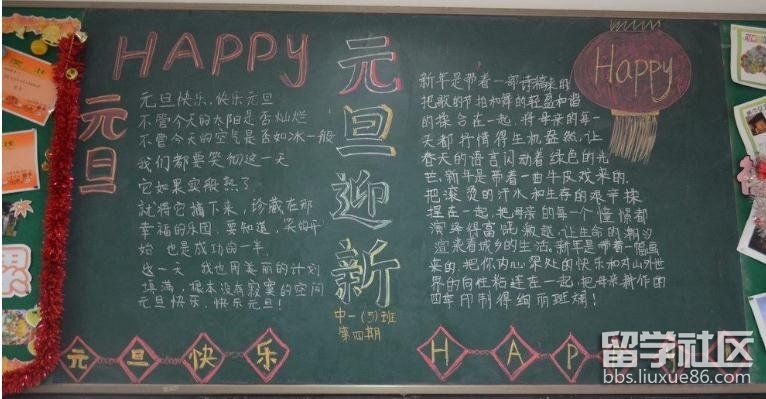 HAPPY
元旦
元旦快乐,快乐元旦
不管今天的太阳是否灿烂
不管今天的空气是否如冰一般
我们都要笑彻这一天
它如果实般熟了
就将它摘下来,珍藏在那
幸福的乐园,要知道,美好开
始 也是成功的一半
这一天 我也用美丽的计划
填满,根本没有寂寞的空间
元旦快乐,快乐元旦!
元旦迎新
中一(5)班
第四期
Happy
新年是带着一部诗稿来的
把歌的节拍和舞的轻盈和谐
的揉合在一起,将母亲的每一
天都抒情得生机盎然,让
春天的语言闪动着绿色的光
芒,新年是带着一曲牛皮戏来的,
把滚烫的汗水和生存的艰辛揉
捏在一起,把母亲的每一个憧憬都
演绎得富,让生命的潮汐
渲染着城乡的生活,新年是带着一幅画
来的,把你内心深处的快乐和对山外世
界的向往粘连在一起,把母亲新作的
四季印制得绚丽斑斓!
元旦快乐
HAP
留学社区
bbs.liuxue86.com